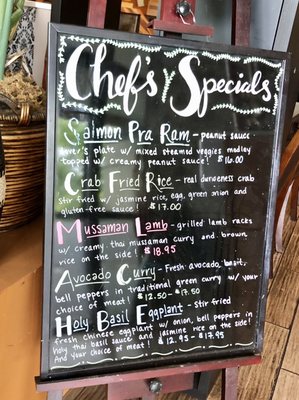 Chef's Specials
Salmon Pra Ram - peanut sauce
lover's plate w/ mixed steamed veggies medley
topped w/ creamy peanut sauce! $16.00
Crab Fried Rice - real dungeness crab
Stir fried w/ jasmine rice, egg, green onion and
gluten-free sauce! $17.00
Mussaman Lamb - grilled lamb racks
w/ creamy thai mussaman curry and brown
rice on the side! $18.95
Avocado Curry - Fresh avocado, basil,
bell peppers in traditional green curry w/ your
choice of meat! $12.50 - $17.50
Holy Basil Eggplant - Stir fried
fresh chinese eggplant w/ onion, bell peppers in
holy thai basil sauce and jasmine rice on the side!
And your choice of meat! $12.95 - $17.95